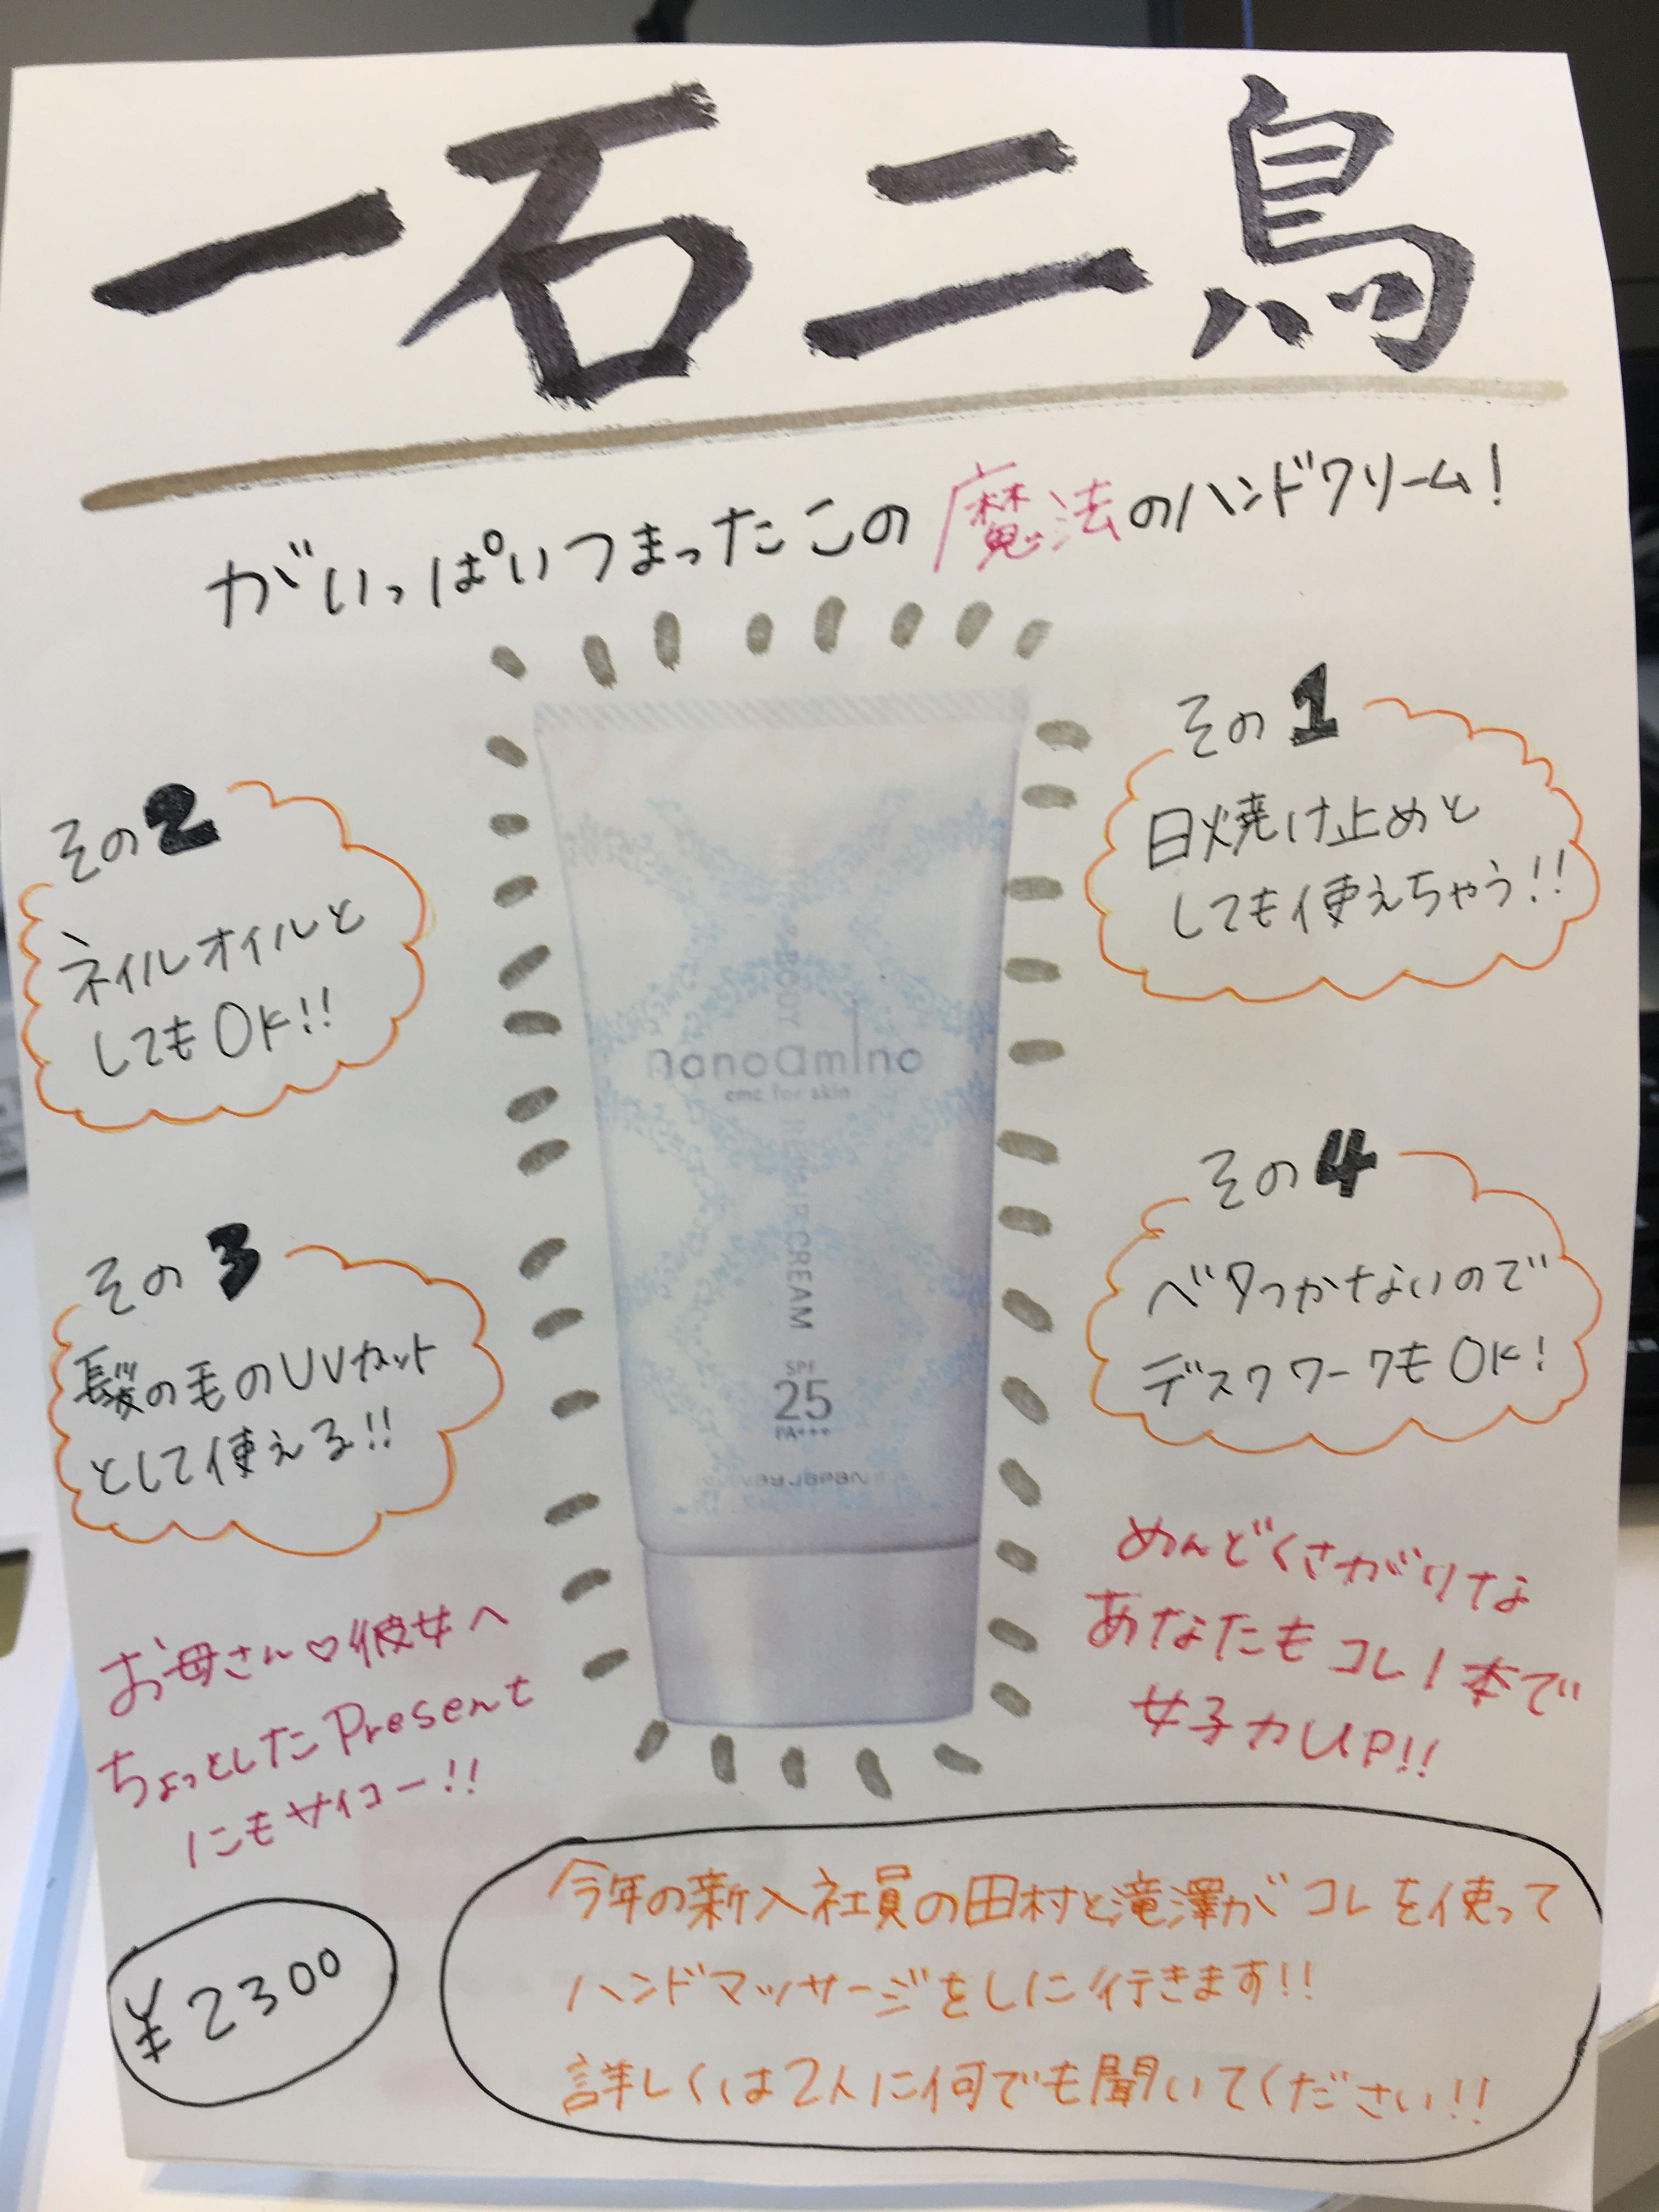 一石二鳥
がいっぱいつまったこの魔法のハンドクリーム!
その1
日焼け止めと
しても使えちゃう!!
その2
ネイルオイルと
してもOK!!
その3
髪の毛のUVカット
として使える!!
その4
ベタつかないので
デスクワークもOK!
nanoamino
cmc for skin
BODY
CREAM
SPF
25
PA+++
めんどくさがりな
あなたもコレ1本で
女子力UP!!
お母さん♡彼女へ
ちょっとしたPresent
にもサイコー!!
¥2300
今年の新入社員の田村と滝澤がコレを使って
ハンドマッサージをしに行きます!!
詳しくは2人に何でも聞いてください!!